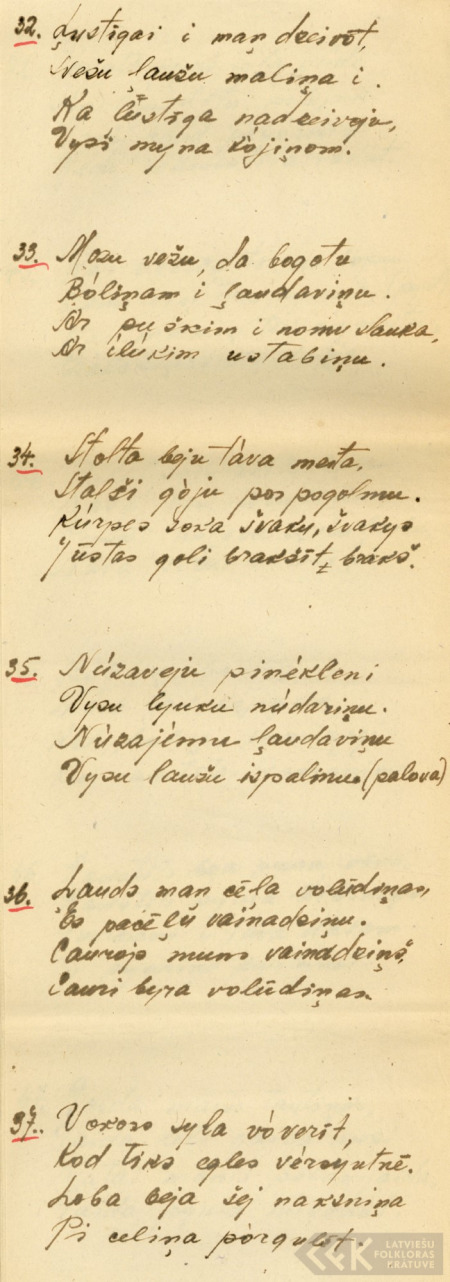 32. Ļustīgai i maņ dzeivōt,
Nešu ļaužu maliņa i.
Ka ļūstīga nadzeivoju,
Vysi myna kòjiņom.
33. Mozu vežu, da bogotu
Bóliņam i ļaudaviņu.
Ar puškim i nomu slauka,
Ar ilúkim ustabiņu.
34. Stolta beju táva meita,
Stalši gòju por pogolmu.
Kúrpes soka švaku, švakys
Jūstas goli brakšīt, brakš.
35. Núzaveju pinékleni
Vysu lyuku núdariņu.
Núzajému ļaudaviņu
Vysu ļaužu izpalinu. (palova)
36. Ļauds maņ cēla volūdiņas,
Es pacēļu vaiņadziņu.
Caurojs muns vainadziņš,
Cauri byra volūdiņas.
37. Vokors syla vòverīt,
Kod tiks egles vérsyutnē.
Loba beja šej naksniņa
Pi celiņa pòrgulēt.
LATVIEŠU
FOLKLORAS
KRĀTUVE